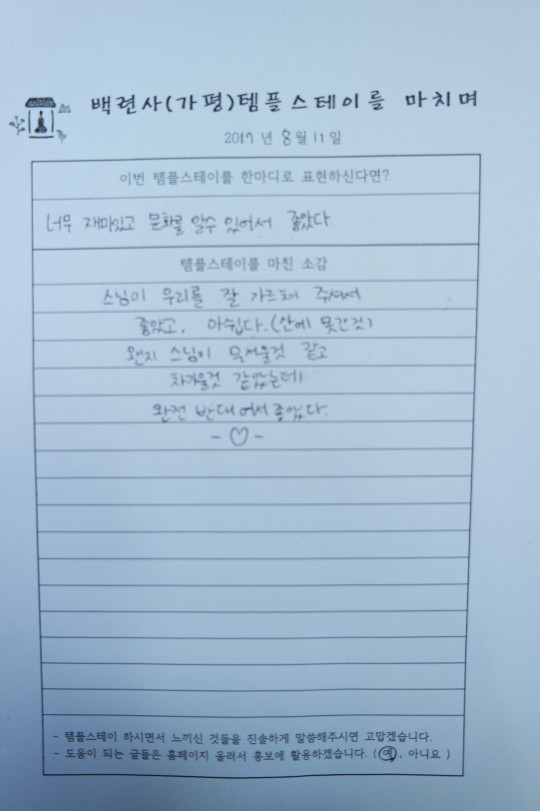 백련사(가평)템플스테이를 마치며
2017 년 8 월 11 일
이번 템플스테이를 한마디로 표현하신다면?
너무 재미있고 문화를 알수 있어서 좋았다
템플스테이를 마친 소감
스님이 우리를 잘 가르쳐 주셔서
좋았고, 아쉽다.(산에 못간것)
왠지 스님이 무서울것 같고
차가울것 같았는데
완전 반대여서 좋았다.
-♡-
- 템플스테이 하시면서 느끼신 것들을 진솔하게 말씀해주시면 고맙겠습니다.
- 도움이 되는 글들은 홈페이지 올려서 홍보에 활용하겠습니다. (예, 아니요 )